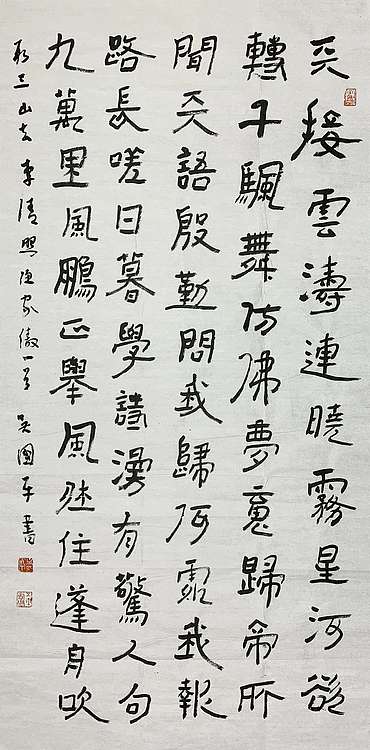 天接雲濤連曉霧星河欲
轉千颿舞仿佛夢魂歸帝所
聞天語殷勤問我歸何處我報
路長嗟日暮學詩漫有驚人句
九萬里風鵬正舉風休住蓬舟吹
取三山去 李清照漁家傲一首 吳國平書